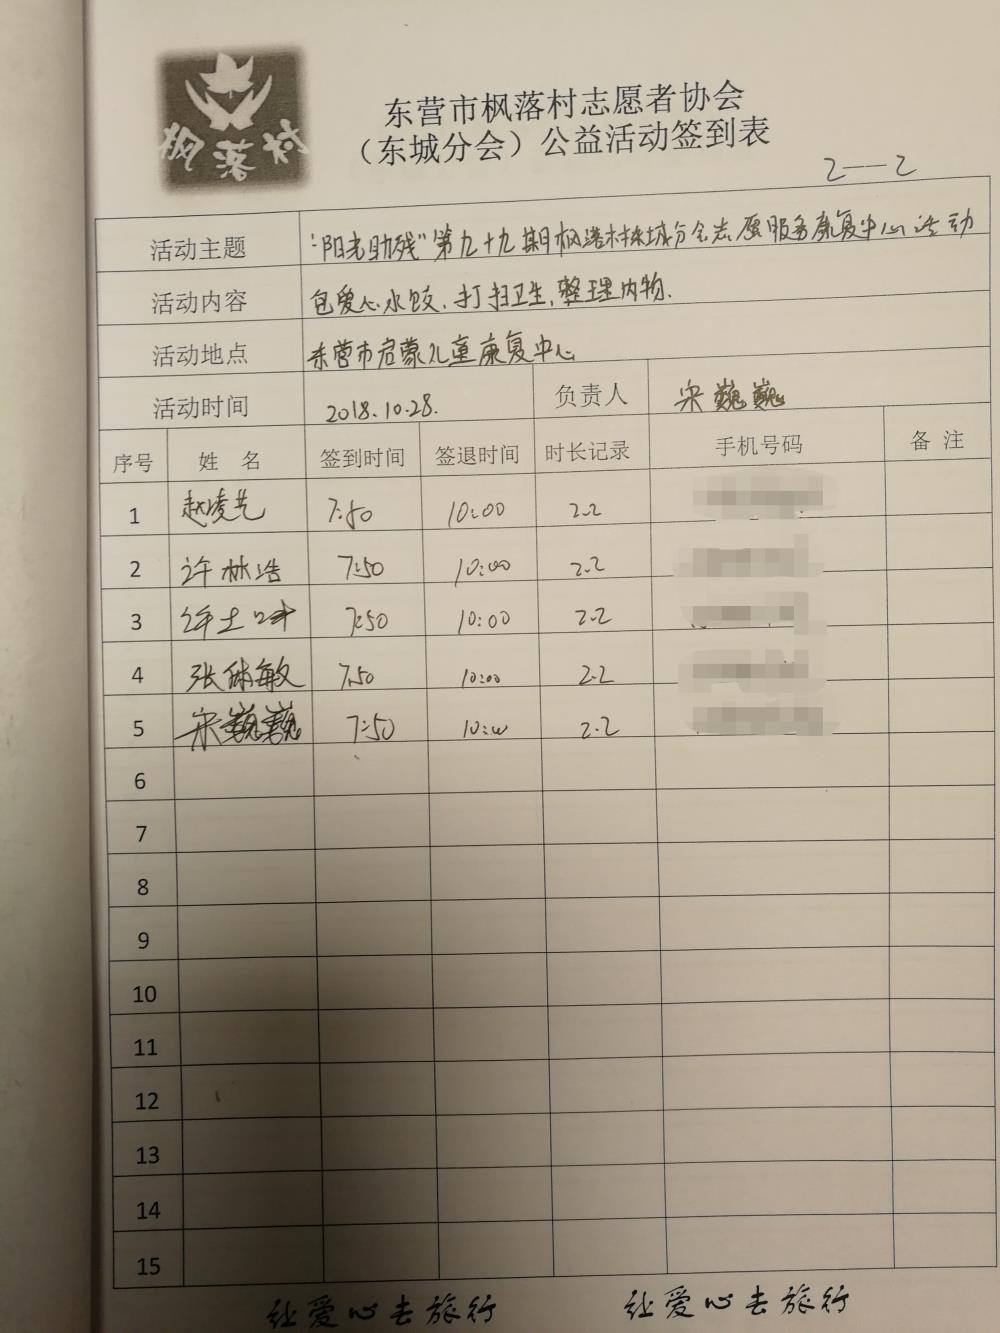 枫落村
东营市枫落村志愿者协会
（东城分会）公益活动签到表
2—2
活动主题 “阳光助残”第九十九期枫落村东城分会志愿服务康复中心活动
活动内容 包爱心水饺、打扫卫生,整理内物.
活动地点 东营市启蒙儿童康复中心
活动时间 2018.10.28. 负责人 宋巍巍
序号 姓 名 签到时间 签退时间 时长记录 手机号码 备 注
1 赵凌艺 7:50 10:00 2.2
2 许林浩 7:50 10:00 2.2
3 7:50 10:00 2.2
4 张琳敏 7:50 10:00 2.2
5 宋巍巍 7:50 10:00 2.2
6
7
8
9
10
11
12
13
14
15
让爱心去旅行 让爱心去旅行